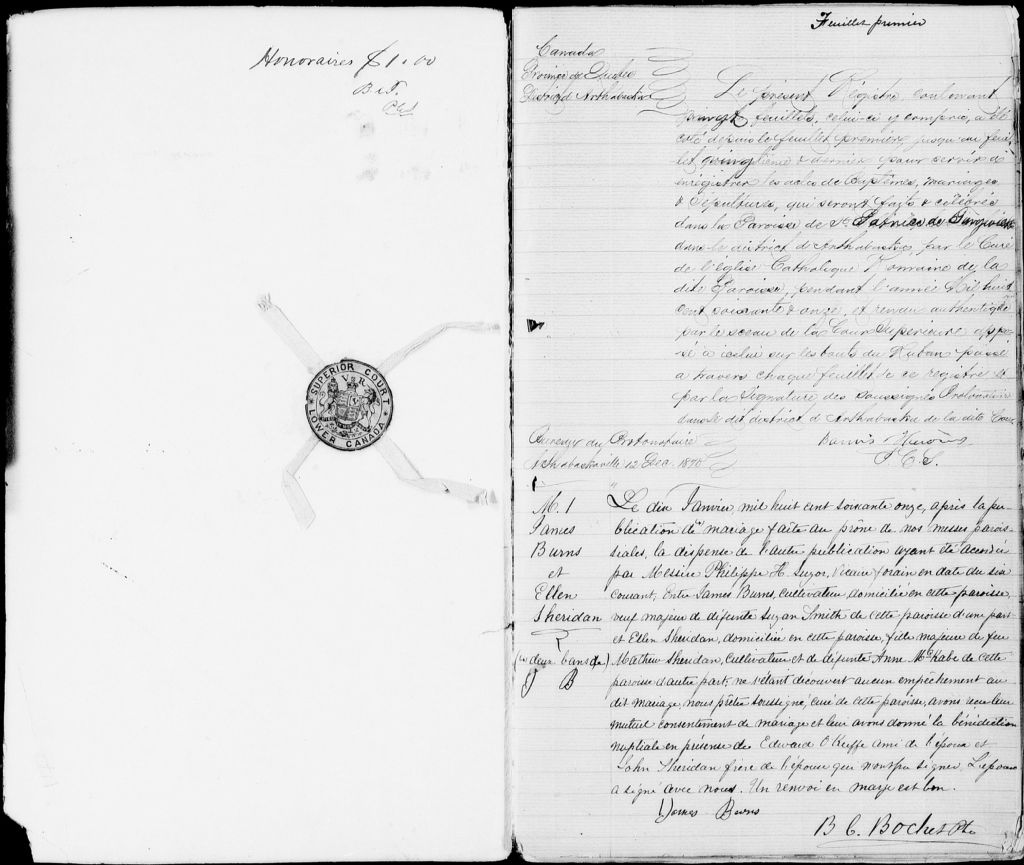 Honoraires $1.00
B & T.
SUPERIOR COURT
V R
LOWER CANADA
Feuillet premier
Canada
Province de Québec
District d'Arthabaska
Le présent Régistre, contenant
vingt feuillets, celui-ci y compris, a été
coté depuis le feuillet premier, jusqu'au feuil-
let vingtième & dernier pour servir à
enrégistrer les actes de Baptêmes, mariages
& Sépultures, qui seront faits & célébrés
dans la Paroisse de St. Patrice de Tingwick
dans le district d'Arthabaska, par le Curé
de l'église Catholique Romaine de la
dite Paroisse, pendant l'année Mil huit
cent soixante & onze, et rendu authentique
par le sceau de la Cour Supérieure appo-
sé à icelui sur les bouts du Ruban passé
à travers chaque feuillet de ce registre &
par la Signature des soussignés Protonotaire
dans le dit district d'Arthabaska de la dite Cour
Bureau du Protonotaire
Arthabaskaville 12 Dec. 1870
P. C. S.
M. 1
James
Burns
et
Ellen
Sheridan
(de deux bans de)
J B
Le dix Janvier mil huit cent soixante onze, après la pu-
blication de mariage faite au prône de nos messes parois-
siales, la dispense de l'autre publication ayant été accordée
par Messire Philippe H. Suzor, Vicaire forain en date du six
courant, Entre James Burns, cultivateur, domicilié en cette paroisse,
veuf majeur de défunte Suzan Smith de cette paroisse d'une part
et Ellen Sheridan, domiciliée en cette paroisse, fille majeure de feu
Mathew Sheridan, Cultivateur et de défunte Anne McKabe de cette
paroisse d'autre part, ne s'étant découvert aucun empêchement au
dit mariage, nous prêtre soussigné, curé de cette paroisse, avons reçu leur
mutuel consentement de mariage et leur avons donné la bénédiction
nuptiale en présence de Edward O'Keffe ami de l'époux et
John Sheridan frère de l'épouse qui n'ont pu signer. L'époux
a signé avec nous. Un renvoi en marge est bon.
James Burns
B C. Bochet Ptre